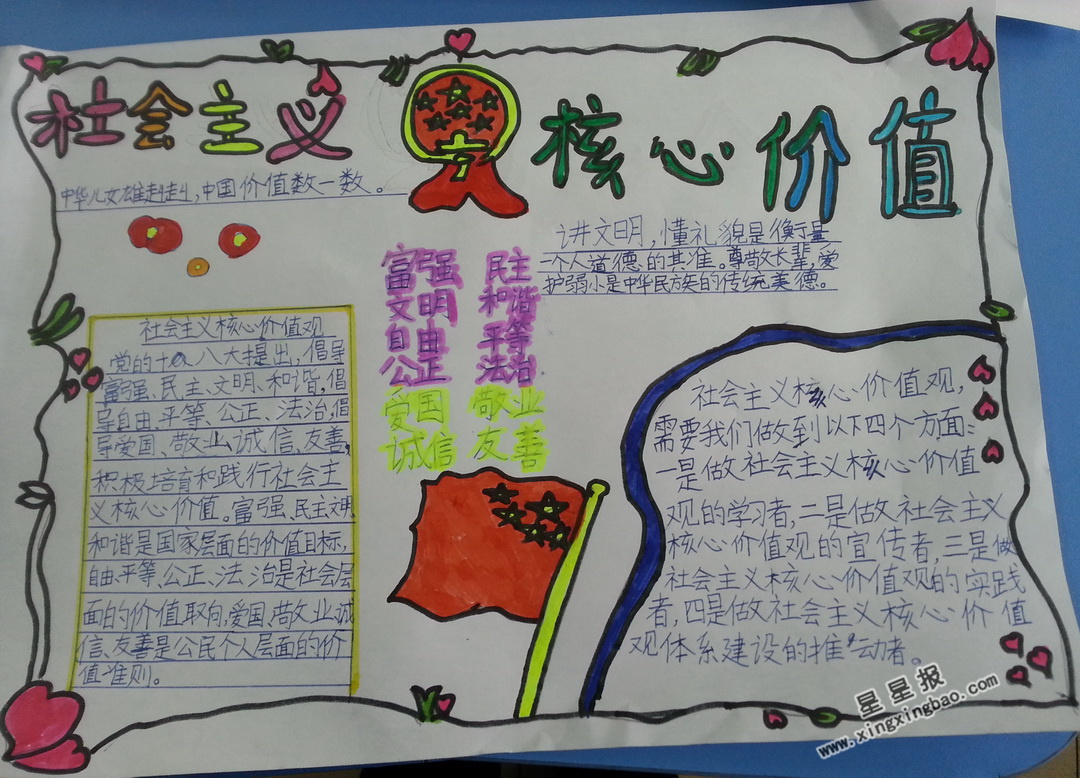 社会主义
核心价值
中华儿女雄赳赳,中国价值数一数。
讲文明,懂礼貌是衡量
一个人道德的其准。尊敬长辈,爱
护弱小是中华民族的传统美德。
富强 民主
文明 和谐
自由 平等
公正 法治
爱国 敬业
诚信 友善
社会主义核心价值观
党的十八大提出,倡导
富强、民主、文明、和谐,倡
导自由、平等、公正、法治,倡
导爱国、敬业、诚信、友善,
积极培育和践行社会主
义核心价值。富强、民主文明
和谐是国家层面的价值目标,
自由、平等、公正、法治是社会层
面的价值取向,爱国、敬业诚
信、友善是公民个人层面的价
值准则。
社会主义核心价值观,
需要我们做到以下四个方面:
一是做社会主义核心价值
观的学习者,二是做社会主义
核心价值观的宣传者,三是做
社会主义核心价值观的实践
者,四是做社会主义核心价值
观体系建设的推动者。
星星报
www.xingxingbao.com